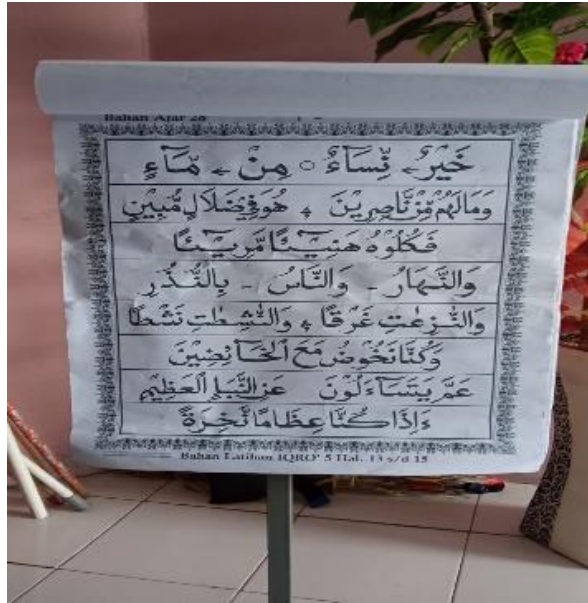 Bahan Ajar 28
خَيْرٌ ← نِّسَآءٌ ○ مِنْ ← مَّآءٍ
وَمَالَهُمْ مِّنْ نَّاصِرِيْنَ ؞ هُوَفِيْ ضَلَالٍ مُّبِيْنٍ
فَكُلُوْهُ هَنِيْٓـئًا مَّرِيْٓـئًا
وَالنَّهَارُ - وَالنَّاسُ - بِالنُّذُرِ
وَالنّٰزِعٰتِ غَرْقًا ؞ وَالنّٰشِطٰتِ نَشْطًا
وَكُنَّا نَخُوْضُ مَعَ الْخَآئِضِيْنَ
عَمَّ يَتَسَآءَلُوْنَ عَنِ النَّبَاِ الْعَظِيْمِ
ءَاِذَا كُنَّا عِظَامًا نَّخِرَةً
Bahan Latihan IQRO' 5 Hal. 13 s/d 15